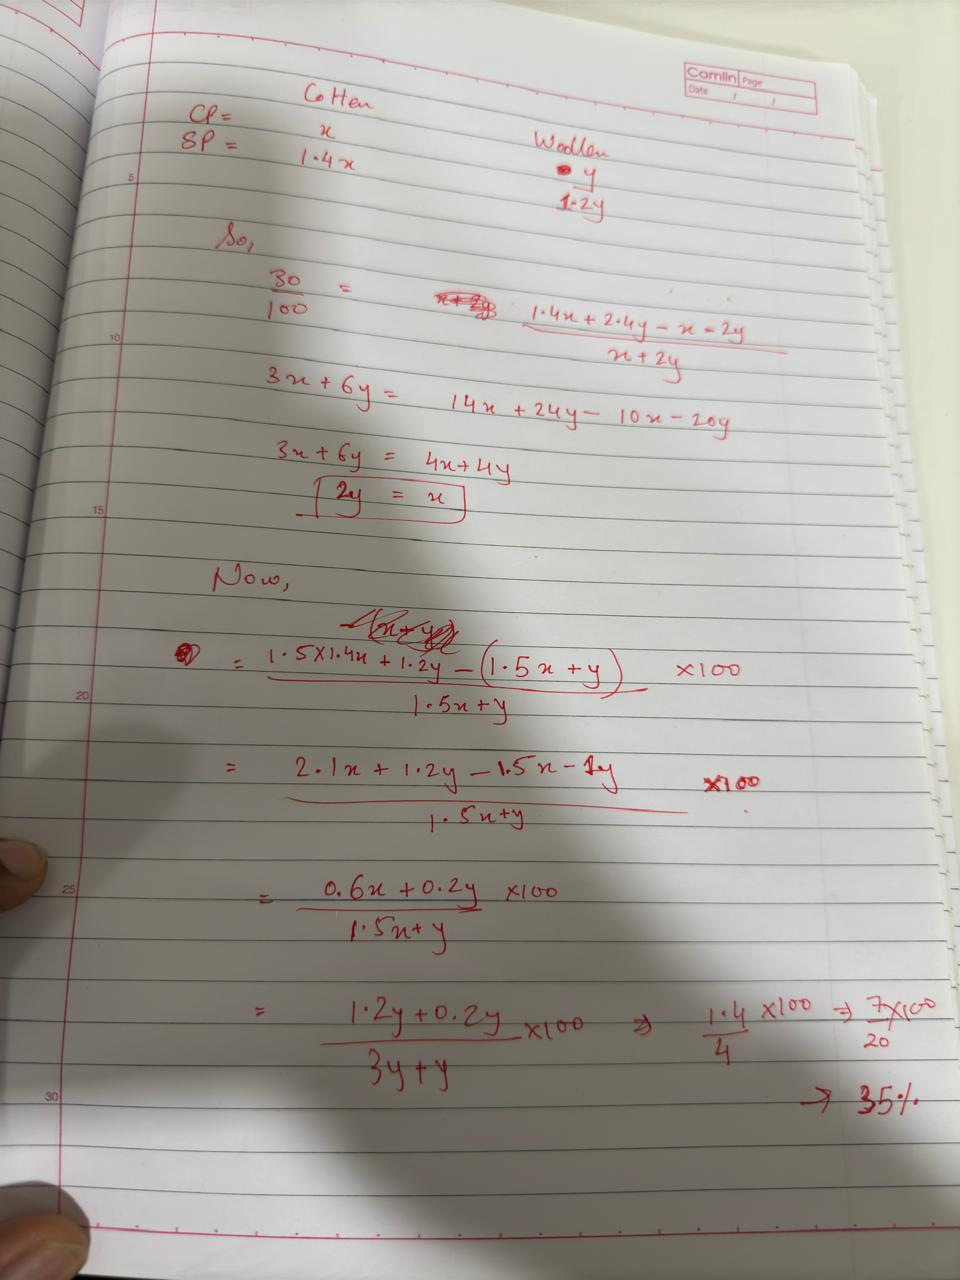 Camlin Page
Date / /
Cotten Woollen
CP = x y
SP = 1.4x 1.2y
5
So,
30/100 = (1.4x + 2.4y - x - 2y)/(x + 2y)
10
3x + 6y = 14x + 24y - 10x - 20y
3x + 6y = 4x + 4y
2y = x
15
Now,
= (1.5×1.4x + 1.2y - (1.5x + y))/(1.5x + y) ×100
20
= (2.1x + 1.2y - 1.5x - 1y)/(1.5x + y) ×100
25
= (0.6x + 0.2y)/(1.5x + y) ×100
= (1.2y + 0.2y)/(3y + y) ×100 ⇒ 1.4/4 ×100 ⇒ 7/20 ×100
30
→ 35%